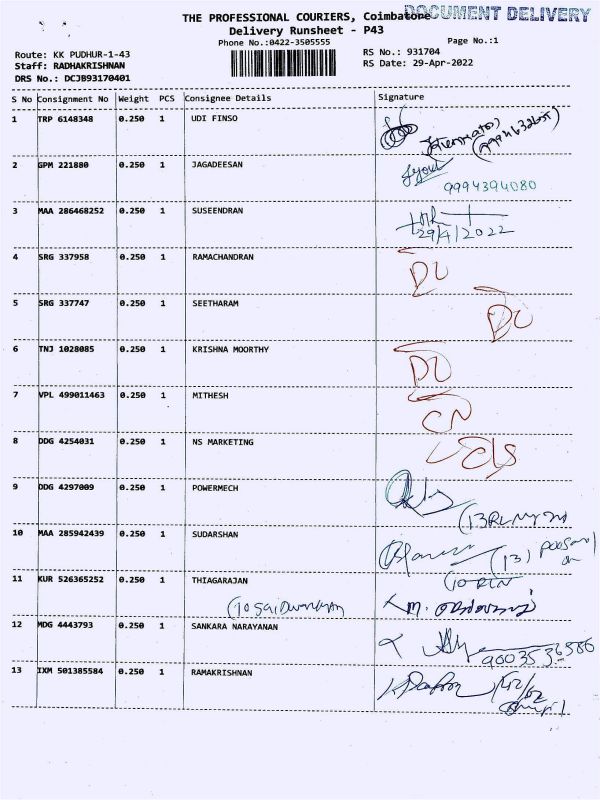 DOCUMENT DELIVERY
THE PROFESSIONAL COURIERS, Coimbatore
Delivery Runsheet - P43
Phone No.:0422-3505555
Page No.:1
Route: KK PUDHUR-1-43
RS No.: 931704
Staff: RADHAKRISHNAN
RS Date: 29-Apr-2022
DRS No.: DCJB93170401
S No Consignment No Weight PCS Consignee Details Signature
1 TRP 6148348 0.250 1 UDI FINSO
2 GPM 221880 0.250 1 JAGADEESAN
9994394080
3 MAA 286468252 0.250 1 SUSEENDRAN
29/4/2022
4 SRG 337958 0.250 1 RAMACHANDRAN DL
5 SRG 337747 0.250 1 SEETHARAM DL
6 TNJ 1028085 0.250 1 KRISHNA MOORTHY DL
7 VPL 499011463 0.250 1 MITHESH CN
8 DDG 4254031 0.250 1 NS MARKETING
9 DDG 4297009 0.250 1 POWERMECH
10 MAA 285942439 0.250 1 SUDARSHAN (13)
11 KUR 526365252 0.250 1 THIAGARAJAN
12 MDG 4443793 0.250 1 SANKARA NARAYANAN
9003536586
13 IXM 501385584 0.250 1 RAMAKRISHNAN